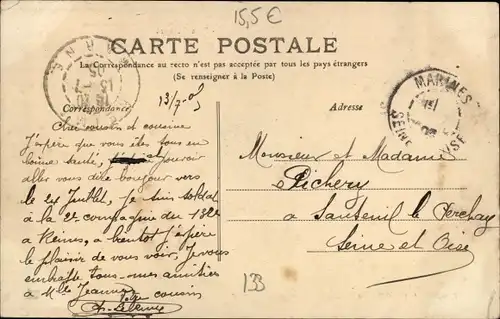 15,5 €
CARTE POSTALE
La Correspondance au recto n'est pas acceptée par tous les pays étrangers
(Se renseigner à la Poste)
Correspondance
Adresse
13/7-05
MARINES
SEINE
OISE
REIMS
Cher cousin et cousine
J'espère que vous êtes tous en
bonne santé, pouvoir
aller vous dire bonjour vers
le Juillet, je suis soldat
à la 2e compagnie du 132e
a Reims, a bientot j'espère
le plaisir de vous voir, Je vous
embrasse tous mes amitiés
a Mlle Jeanne
votre cousin
Monsieur et Madame
Pichery
a Santeuil le Perchay
Seine et Oise
133